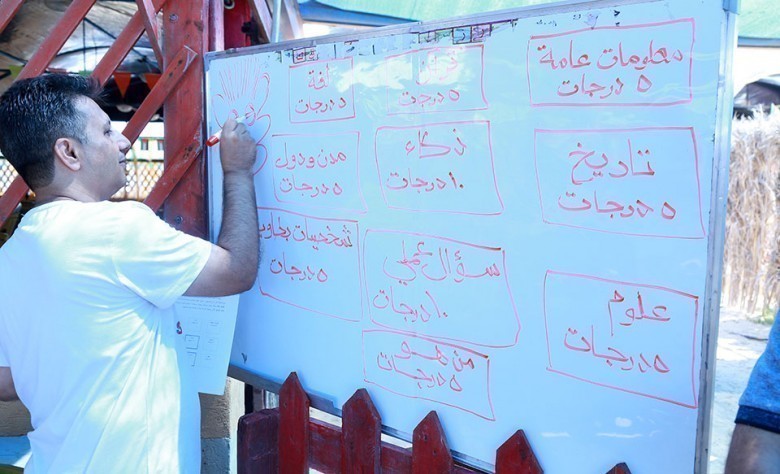 معلومات عامة
٥ درجات
٥ درجات
لغة
٥ درجات
تاريخ
٥ درجات
ذكاء
١٠ درجات
مدن ودول
٥ درجات
علوم
٥ درجات
سؤال عملي
١٠ درجات
شخصيات
٥ درجات
من هو
٥ درجات